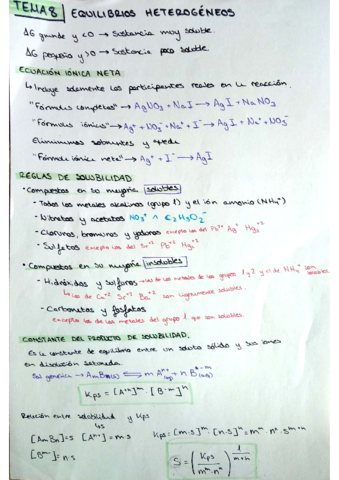 TEMA 8 EQUILIBRIOS HETEROGÉNEOS
ΔG grande y <0 → Sustancia muy soluble.
ΔG pequeño y >0 → Sustancia poco soluble.
ECUACIÓN IÓNICA NETA
↳ Incluye solamente los participantes reales en la reacción.
"Fórmulas completas" → AgNO3 + NaI → AgI + NaNO3
"Fórmulas iónicas" → Ag+ + NO3- + Na+ + I- → AgI + Na+ + NO3-
Eliminamos sobrantes y queda
"Fórmula iónica neta" → Ag+ + I- → AgI
REGLAS DE SOLUBILIDAD
• Compuestos en su mayoría solubles
- Todos los metales alcalinos (grupo 1) y el ión amonio (NH4+)
- Nitratos y acetatos NO3- ^ C2H3O2-
- Cloruros, bromuros y yoduros excepto los del Pb+2 Ag+ Hg2+2
- Sulfatos excepto los del Sr+2 Pb+2 Hg2+2
• Compuestos en su mayoría insolubles
- Hidróxidos y sulfuros → los de los metales de los grupos 1 y 2 y el de NH4+ son solubles.
↳ Los de Ca+2 Sr+2 Ba+2 son ligeramente solubles.
- Carbonatos y fosfatos
excepto los de los metales del grupo 1 que son solubles.
CONSTANTE DEL PRODUCTO DE SOLUBILIDAD.
Es la constante de equilibrio entre un soluto sólido y sus iones
en disolución saturada.
Sal genérica → AmBn(s) ⇌ m A n+ (aq) + n B m- (aq)
Kps = [A+n]^m · [B-m]^n
Relación entre solubilidad y Kps
[AmBn] = s [A n+] = m·s Kps = [m·s]^m · [n·s]^n = m^m · n^n · s^m+n
[B m-] = n·s S = (Kps / m^m · n^n)^1/m+n